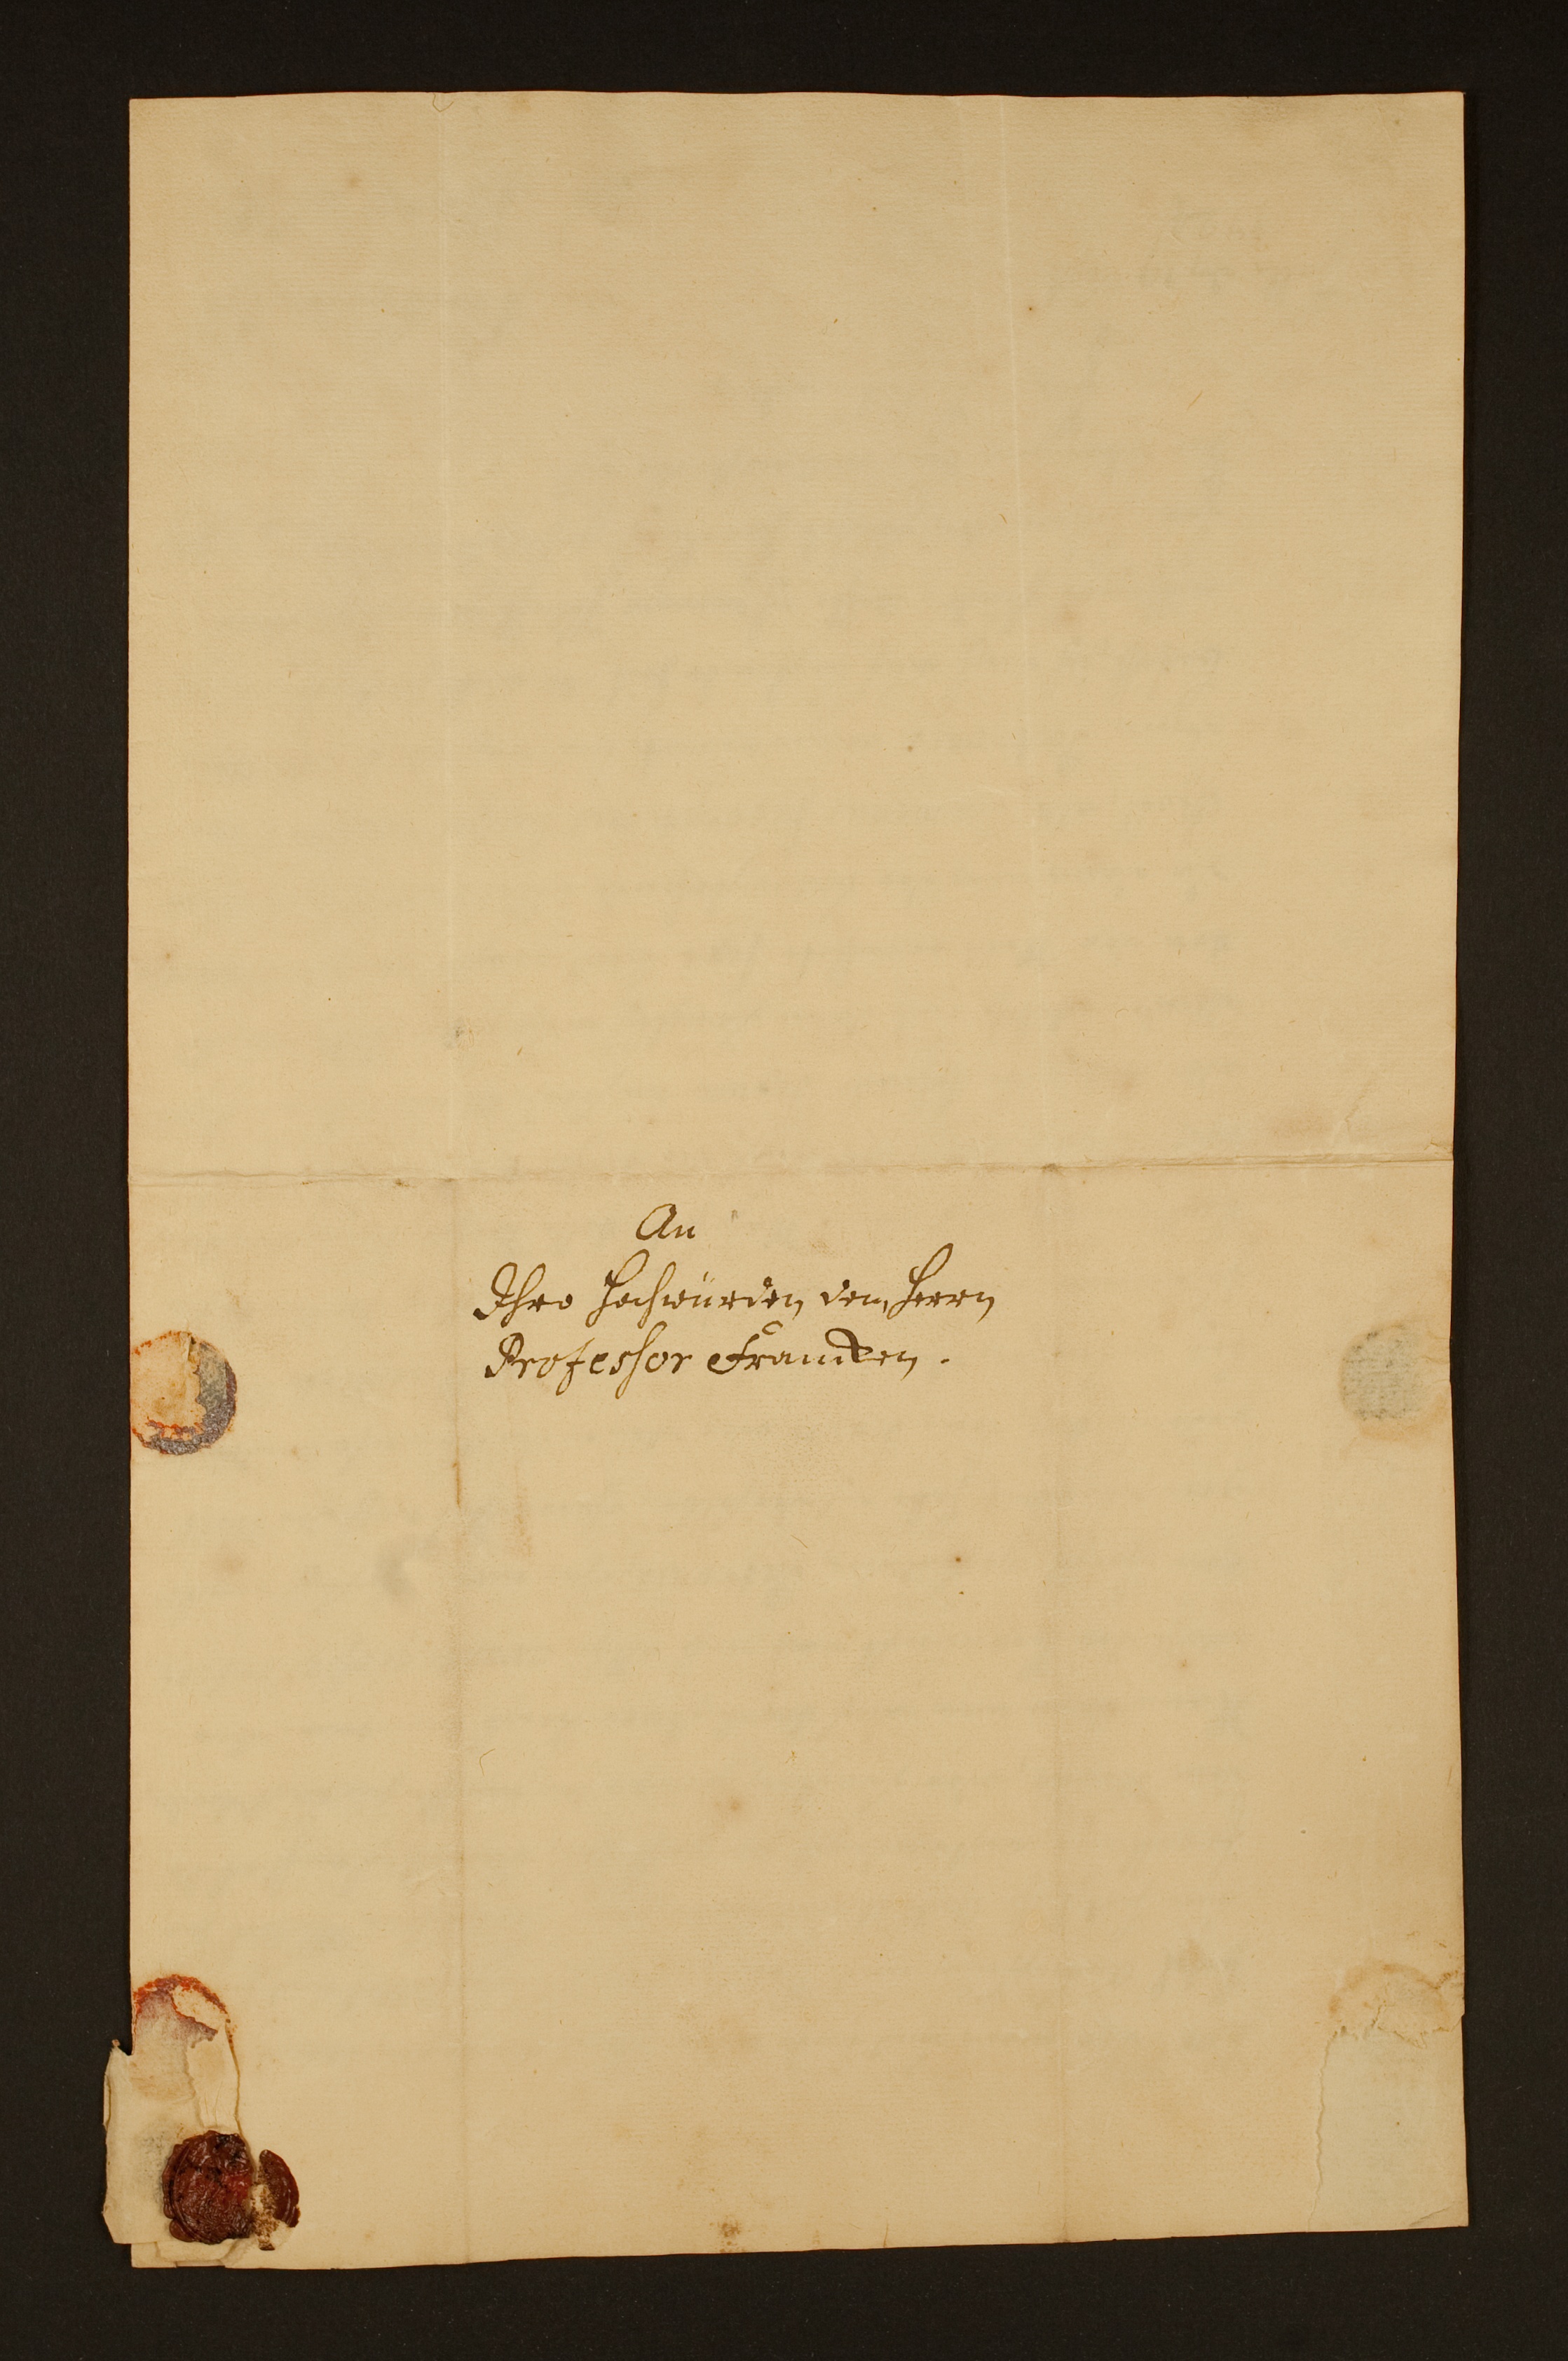 An
Ihro Hochwürden dem Herrn
Professor Francken.